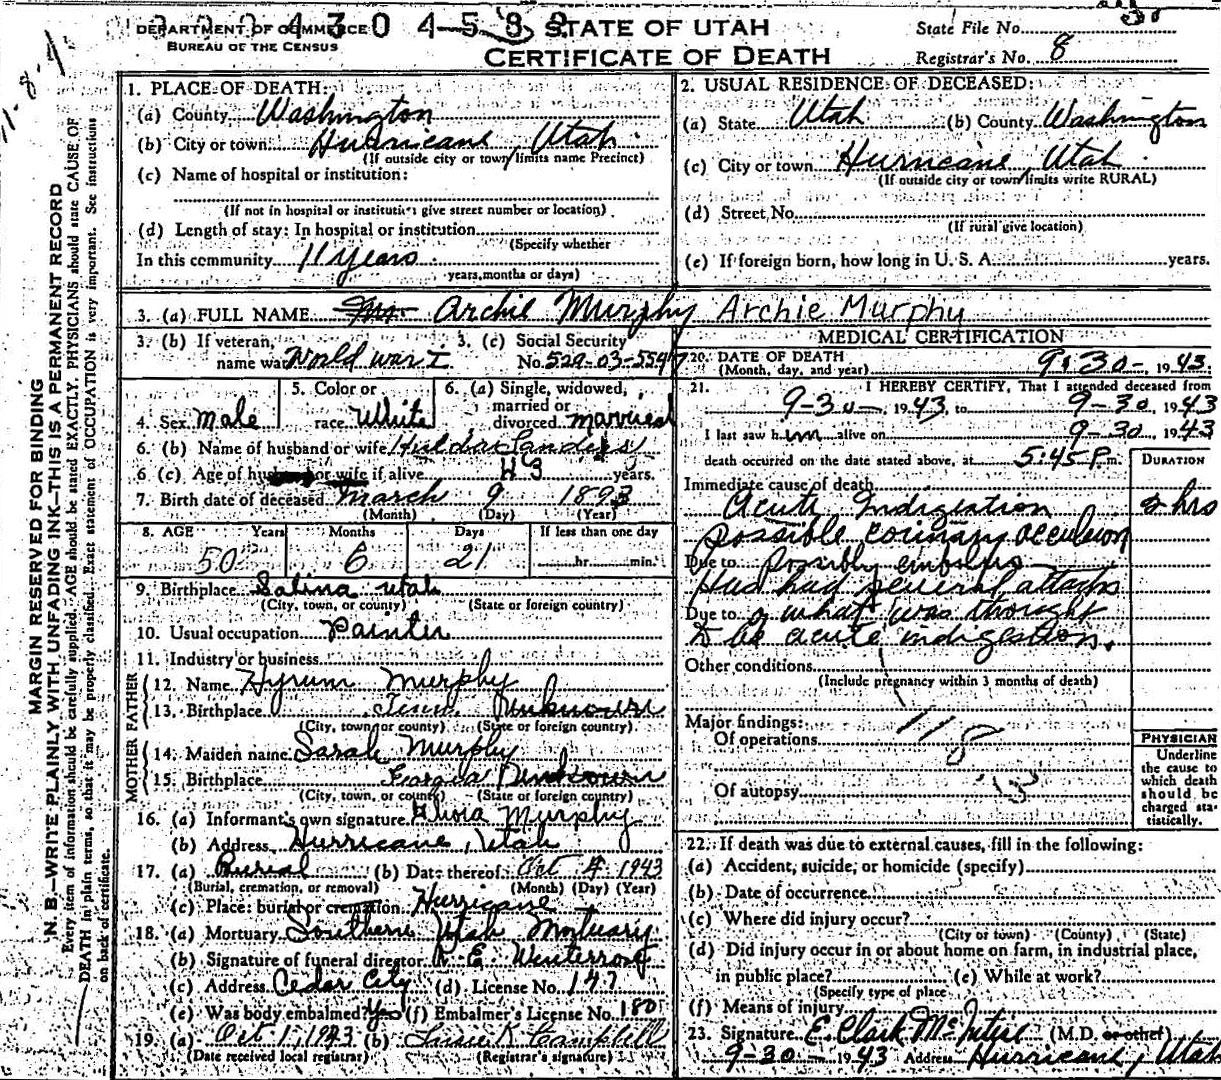 DEPARTMENT OF COMMERCE
BUREAU OF THE CENSUS
STATE OF UTAH
CERTIFICATE OF DEATH
State File No.
Registrar's No. 8
MARGIN RESERVED FOR BINDING
N. B.—WRITE PLAINLY WITH UNFADING INK—THIS IS A PERMANENT RECORD
Every item of information should be carefully supplied. AGE should be stated EXACTLY. PHYSICIANS should state CAUSE OF
DEATH in plain terms, so that it may be properly classified. Exact statement of OCCUPATION is very important. See instructions
on back of certificate.
1. PLACE OF DEATH:
(a) County Washington
(b) City or town Hurricane, Utah
(If outside city or town limits name Precinct)
(c) Name of hospital or institution:
(If not in hospital or institution give street number or location)
(d) Length of stay: In hospital or institution
(Specify whether
In this community 11 years
years, months or days)
2. USUAL RESIDENCE OF DECEASED:
(a) State Utah (b) County Washington
(c) City or town Hurricane, Utah
(If outside city or town limits write RURAL)
(d) Street No.
(If rural give location)
(e) If foreign born, how long in U. S. A. years.
3. (a) FULL NAME Mr. Archie Murphy Archie Murphy
3. (b) If veteran, name war World war I 3. (c) Social Security No. 529-03-5547
4. Sex Male
5. Color or race White
6. (a) Single, widowed, married or divorced married
6. (b) Name of husband or wife Hulda Sanders
6 (c) Age of husband or wife if alive 43 years.
7. Birth date of deceased March 9 1893
(Month) (Day) (Year)
8. AGE Years Months Days If less than one day
50 6 21 hr. min.
9. Birthplace Salina Utah
(City, town, or county) (State or foreign country)
10. Usual occupation Painter
11. Industry or business
FATHER
12. Name Hyrum Murphy
13. Birthplace Tenn. Unknown
(City, town, or county) (State or foreign country)
MOTHER
14. Maiden name Sarah Murphy
15. Birthplace Georgia Unknown
(City, town, or county) (State or foreign country)
16. (a) Informant's own signature Murphy
(b) Address Hurricane, Utah
17. (a) Burial (b) Date thereof Oct 4 1943
(Burial, cremation, or removal) (Month) (Day) (Year)
(c) Place: burial or cremation Hurricane
18. (a) Mortuary Southern Utah Mortuary
(b) Signature of funeral director R. E. Winterrose
(c) Address Cedar City (d) License No. 147
(e) Was body embalmed? Yes (f) Embalmer's License No. 180
19. (a) Oct 1, 1943 (b) Campbell
(Date received local registrar) (Registrar's signature)
MEDICAL CERTIFICATION
20. DATE OF DEATH 9-30-, 1943
(Month, day, and year)
21. I HEREBY CERTIFY, That I attended deceased from
9-30-, 1943, to 9-30, 1943
I last saw him alive on 9-30, 1943
death occurred on the date stated above, at 5:45 P.m.
DURATION
Immediate cause of death
Acute Indigestion 2 hrs
Possible corinary occulsion
Due to Possibly embolus
Had had several attacks
Due to of what was thought
to be acute indigestion.
Other conditions
(Include pregnancy within 3 months of death)
Major findings:
Of operations
Of autopsy
118
PHYSICIAN
Underline
the cause to
which death
should be
charged sta-
tistically.
22. If death was due to external causes, fill in the following:
(a) Accident, suicide, or homicide (specify)
(b) Date of occurrence
(c) Where did injury occur?
(City or town) (County) (State)
(d) Did injury occur in or about home on farm, in industrial place,
in public place? (e) While at work?
(Specify type of place
(f) Means of injury
23. Signature E. Clark McIntire (M.D. or other)
9-30- 1943 Address Hurricane, Utah